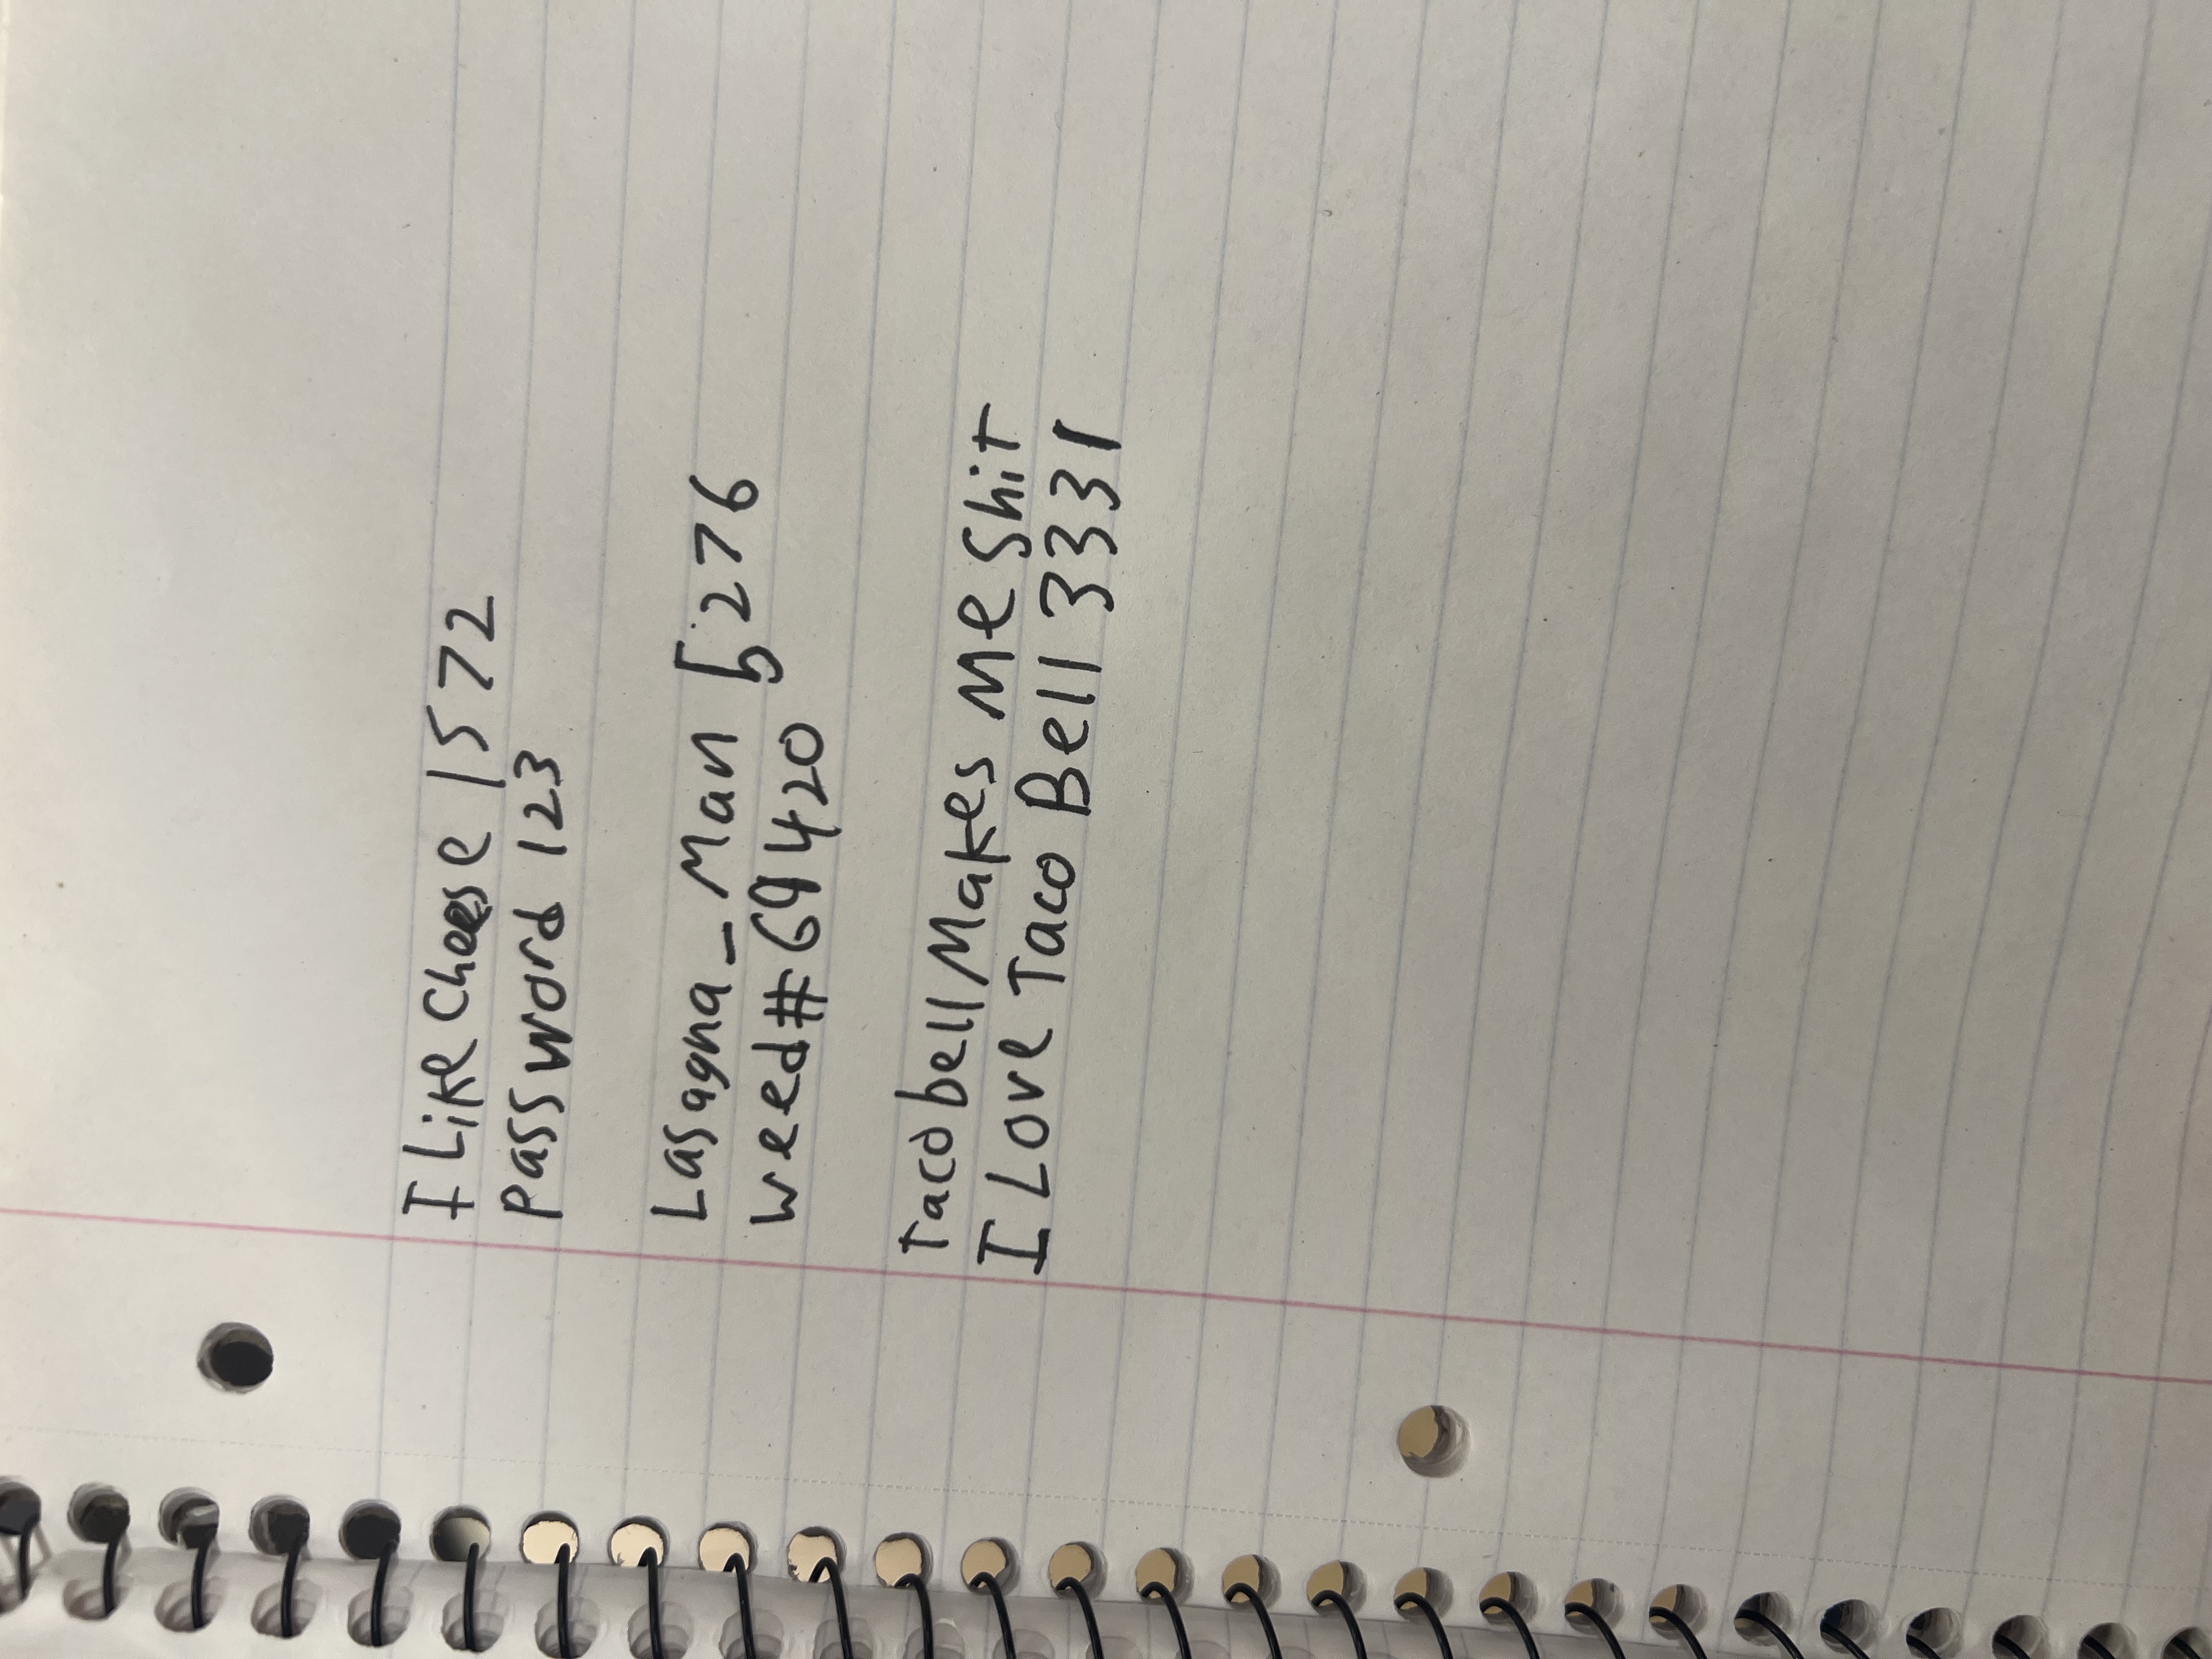 I Like Cheese 1572
Password 123
Lasagna_Man 5276
weed#69420
Tacobell Makes Me Shit
I Love Taco Bell 3331